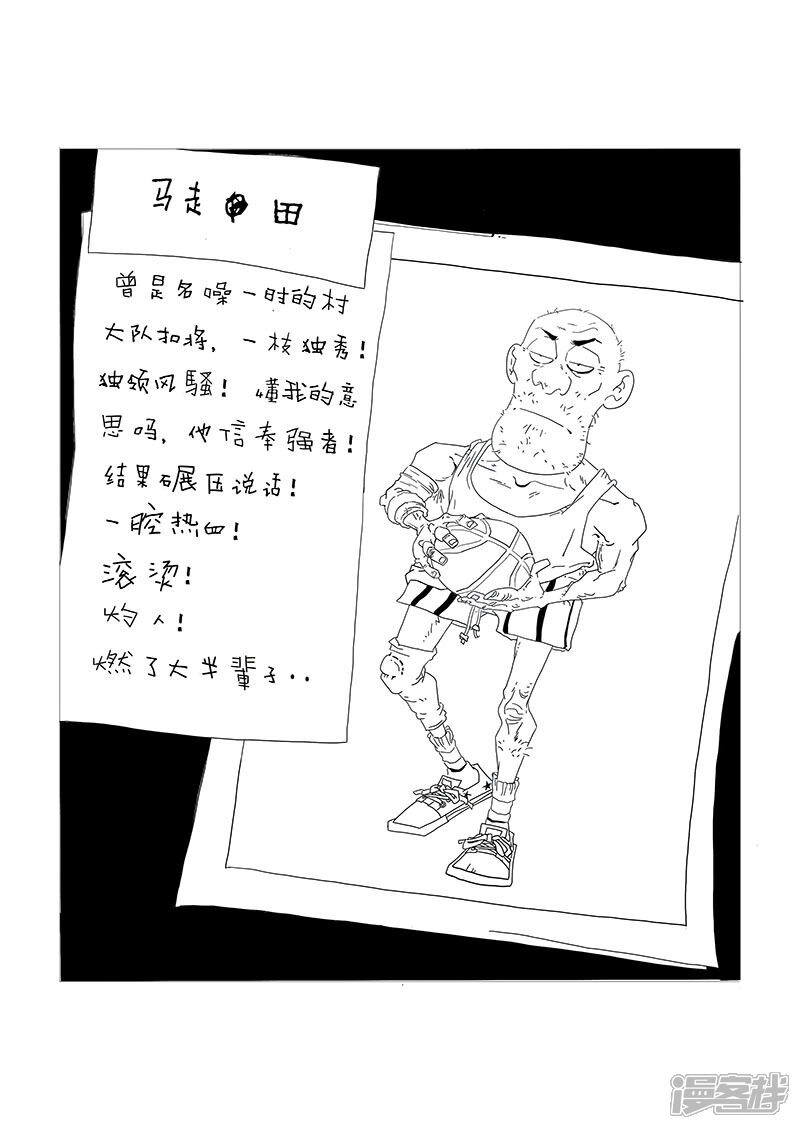 马走田
曾是名噪一时的村
大队扣将，一枝独秀！
独领风骚！懂我的意
思吗，他信奉强者！
结果碾压说话！
一腔热血！
滚烫！
灼人！
燃了大半辈子..
漫客栈